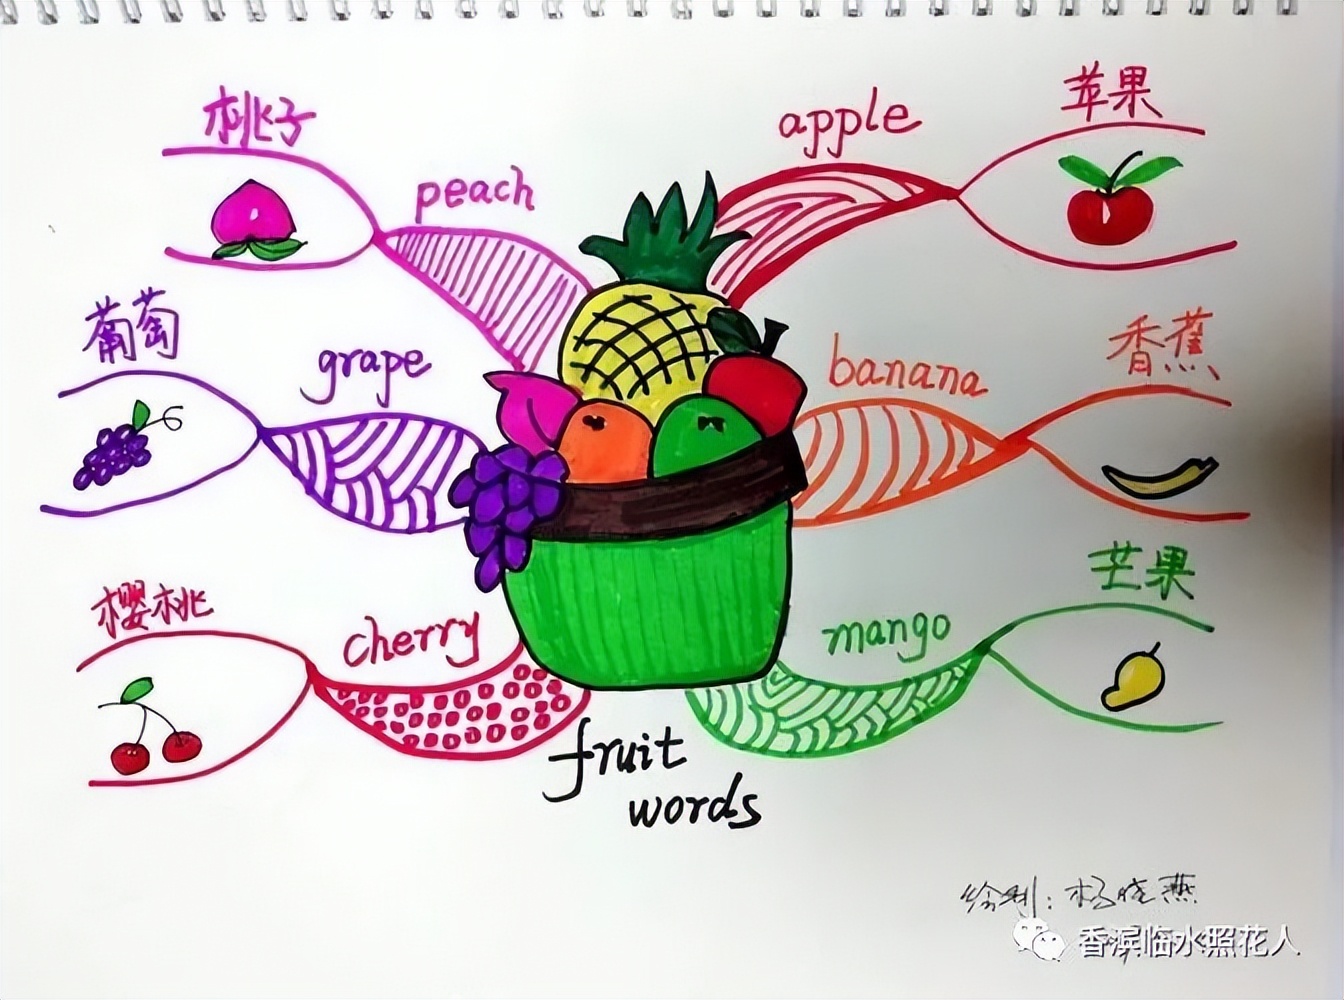 桃子
peach
apple
苹果
葡萄
grape
banana
香蕉
樱桃
cherry
mango
芒果
fruit
words
绘制:杨晓燕
香滨临水照花人